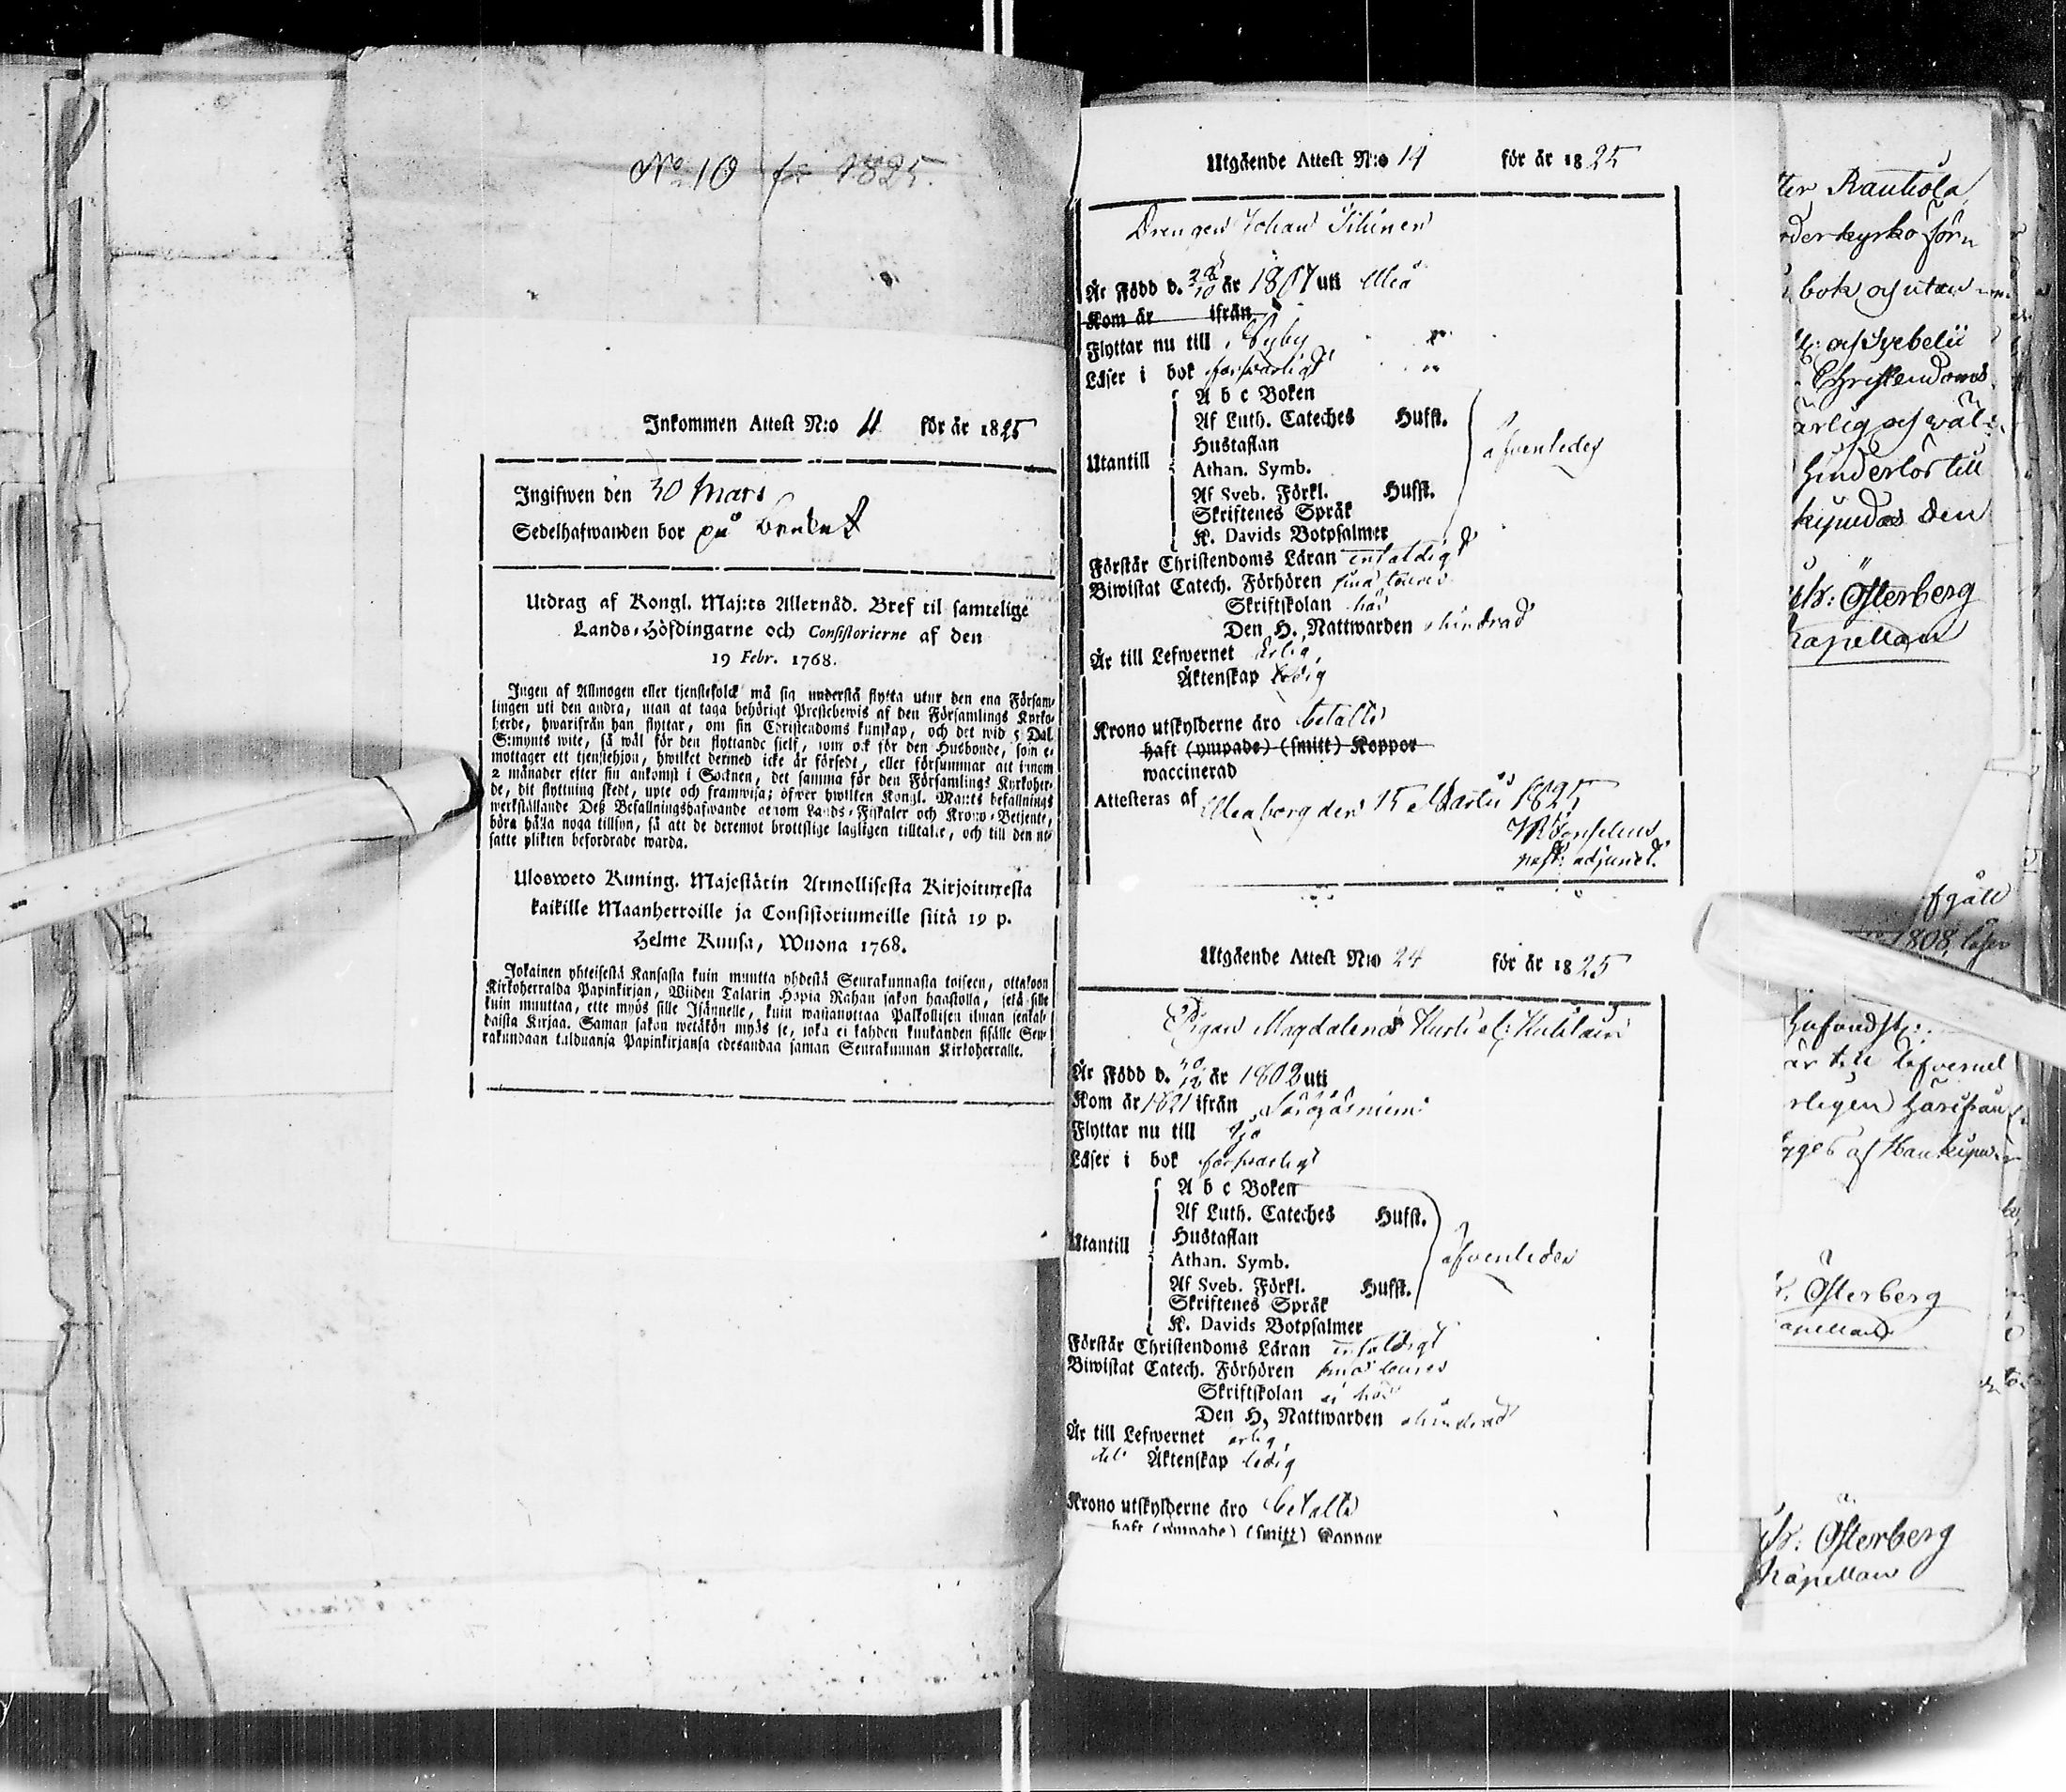 No 10 för 1825.
Inkommen Attest N:o 11 för år 1825
Ingifwen den 30 Mars
Sedelhafwanden bor på
Utdrag af Kongl. Maj:ts Allernåd. Bref til samtelige
Lands-Höfdingarne och Consistorierne af den
19 Febr. 1768.
Ingen af Allmogen eller tjenstefolck må sig understå flytta utur den ena Försam-
lingen uti den andra, utan at taga behörigt Prestebewis af den Församlings Kyrko-
herde, hwarifrån han flyttar, om sin Christendoms kunskap, och det wid 5 Dal.
S:mynts wite, så wäl för den flyttande sjelf, som ock för den Husbonde, som e-
mottager ett tjenstehjon, hwilket dermed icke är försedt, eller försummar att innom
2 månader efter sin ankomst i Socknen, det samma för den Församlings Kyrkoher-
de, dit flyttning skedt, upte och framwisa; öfwer hwilken Kongl. Maj:ts befallnings
werkställande Deß Befallningshafwande genom Lands-Fiskaler och Krono-Betjente,
böra hålla noga tillsyn, så att de deremot brottslige lagligen tilltalas, och till den ut-
satte plikten befordrade warda.
Ulosweto Kuning. Majestätin Armollisesta Kirjoituxesta
kaikille Maanherroille ja Consistoriumeille siitä 19 p.
Helme Kuusa, Wuona 1768.
Jokainen yhteisestä Kansasta kuin muutta yhdestä Seurakunnasta toiseen, ottakoon
Kirkoherralda Papinkirjan, Wiiden Talarin Hopia Rahan sakon haastolla, sekä sille
kuin muuttaa, ette myös sille Isännelle, kuin wastanottaa Palkollisen ilman senkal-
daista Kirjaa. Saman sakon wetäkön myös se, joka ei kahden kuukauden sisälle Seu-
rakundaan tulduansa Papinkirjansa edesandaa saman Seurakunnan Kirkoherralle.
Utgående Attest N:o 14 för år 1825
Drengen Johan
År Född d. 28/10 år 1807 uti Uleå
Kom år ifrån
Flyttar nu till
Läser i bok försvarligt
A b c Boken
Af Luth. Cateches Husst.
Hustaflan
Utantill Athan. Symb. äfvenledes
Af Sveb. Förkl. Husst.
Skriftenes Språk
K. Davids Botpsalmer
Förstår Christendoms Läran enfaldigt
Biwistat Catech. Förhören sina tourer
Skriftskolan här
Den H. Nattwarden ohindrad
År till Lefwernet ärlig,
Äktenskap ledig
Krono utskylderne äro betalte
haft (ympade) (smitt) Koppor
waccinerad
Attesteras af Uleaborg den 15 Martii 1825
past: adjunct.
Utgående Attest N:o 24 för år 1825
Pigan Magdalena
År Född d. /12 år 1802 uti
Kom år 1821 ifrån Säräisniemi
Flyttar nu till Ijo
Läser i bok försvarligt
A b c Boken
Af Luth. Cateches Husst.
Hustaflan
Utantill Athan. Symb. äfvenledes
Af Sveb. Förkl. Husst.
Skriftenes Språk
K. Davids Botpsalmer
Förstår Christendoms Läran enfaldigt
Biwistat Catech. Förhören sina tourer
Skriftskolan ej här
Den H. Nattwarden ohindrad
År till Lefwernet ärlig,
Äktenskap ledig
Krono utskylderne äro betalte
haft (ympade) (smitt) Koppor
Rautiola
bok och utan
och Svebelii
Christendoms
ärlig och väl
hinderlös till
den
Österberg
Kapellan
1808, läser
är till lefvernet
härifrån
af
Österberg
Österberg
Kapellan